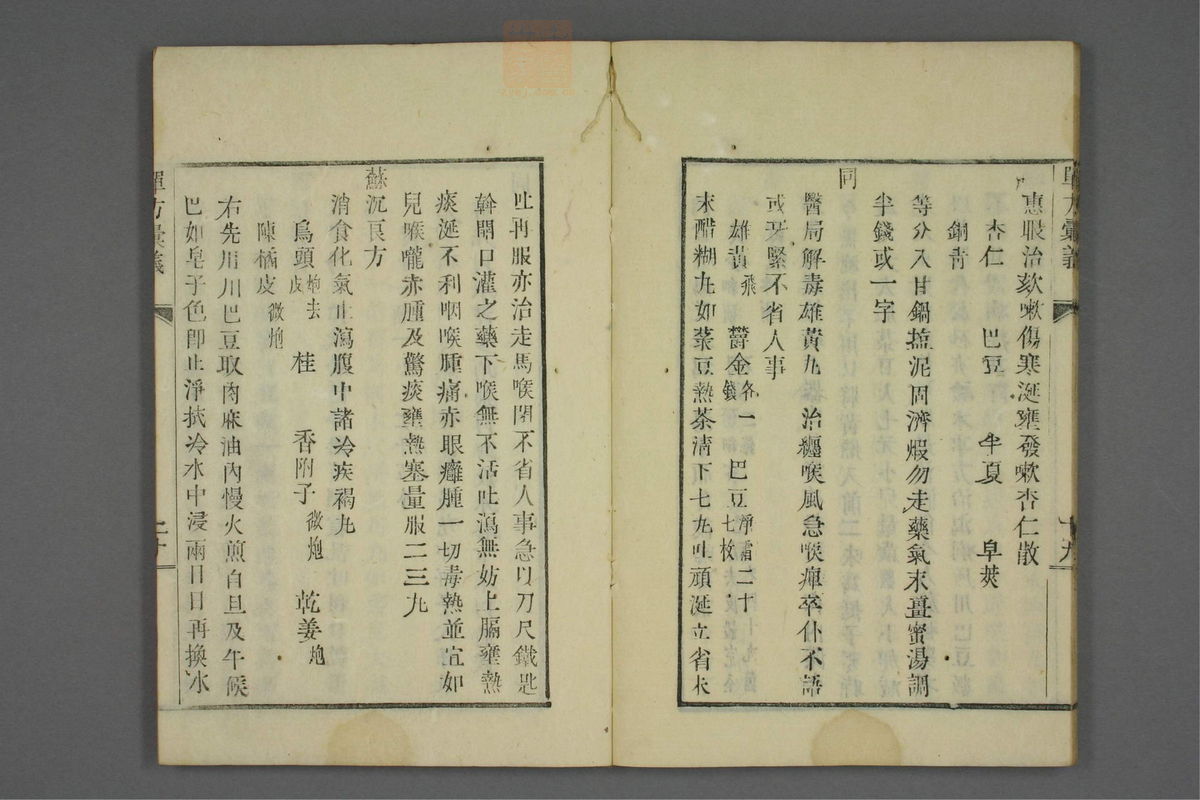 惠眼治欬嗽傷寒涎壅發嗽杏仁散
杏仁 巴豆 半夏 皁莢
銅青
等分入甘鍋搵泥固濟煆勿走藥氣末薑蜜湯調
半錢或一字
同
醫局解毒雄黃丸治纏喉風急喉痺卒仆不語
或牙緊不省人事
雄黃飛 欝金各一錢 巴豆淨霜二十七枚
末醋糊丸如菉豆熱茶淸下七丸吐頑涎立省未
吐再服亦治走馬喉閉不省人事急以刀尺鐵匙
斡開口灌之藥下喉無不活吐瀉無妨上膈壅熱
痰涎不利咽喉腫痛赤眼癰腫一切毒熱並宜如
兒喉嚨赤腫及驚痰壅熱塞量服二三丸
蘇沉良方
消食化氣止瀉腹中諸冷疾褐丸
烏頭炮去皮 桂 香附子微炮 乾姜炮
陳橘皮微炮
右先用川巴豆取肉麻油內慢火煎自旦及午候
巴如皂子色卽止淨拭冷水中浸兩日日再換水
單方彙義
十九
單方彙義
二十